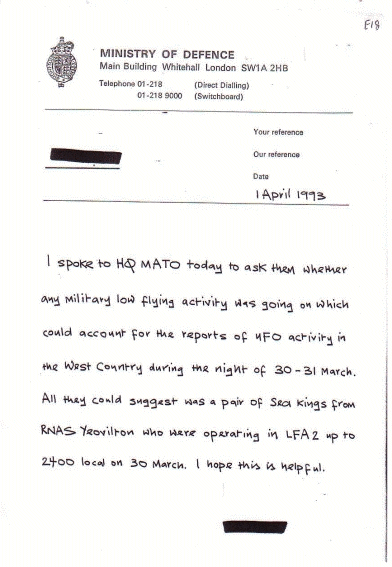 E18
MINISTRY OF DEFENCE
Main Building Whitehall London SW1A 2HB
Telephone 01-218 (Direct Dialling)
01-218 9000 (Switchboard)
Your reference
Our reference
Date
1 April 1993
I spoke to HQ MATO today to ask them whether
any military low flying activity was going on which
could account for the reports of UFO activity in
the West Country during the night of 30-31 March.
All they could suggest was a pair of Sea Kings from
RNAS Yeovilton who were operating in LFA2 up to
2400 local on 30 March. I hope this is helpful.